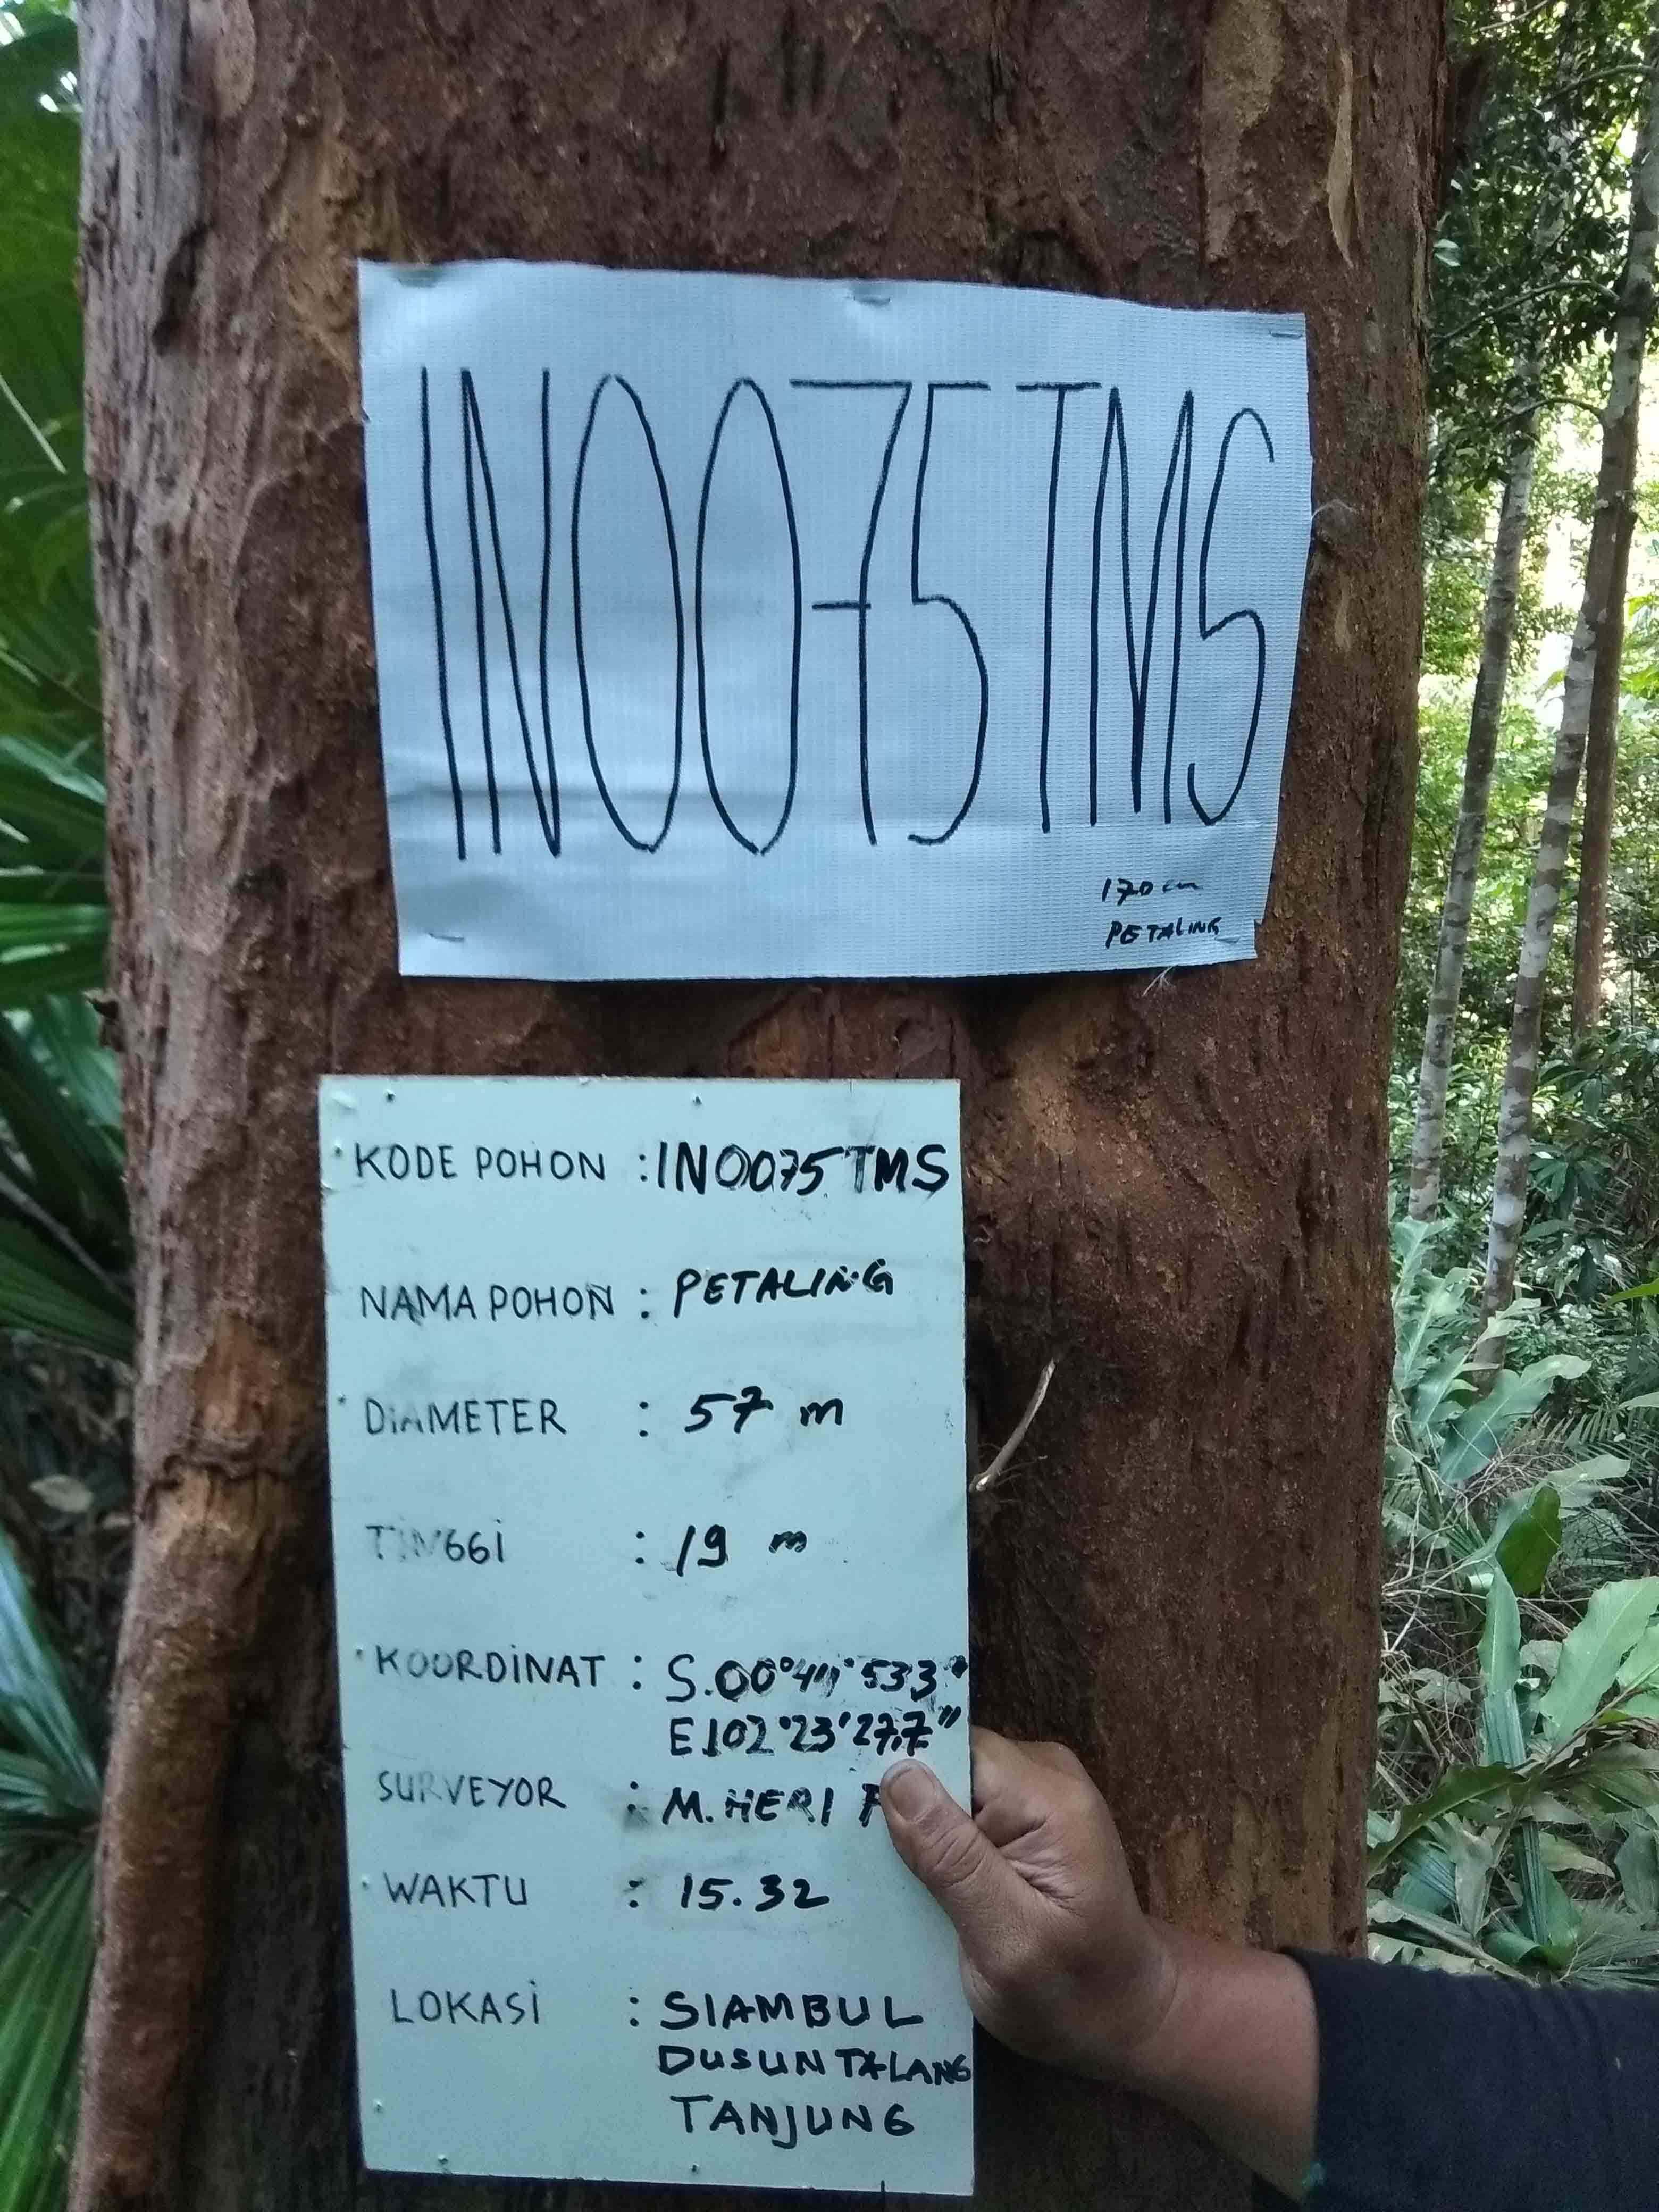 IN0075TMS
170 cm
PETALING
KODE POHON : IN0075 TMS
NAMA POHON : PETALING
DIAMETER : 57 m
TINGGI : 19 m
KOORDINAT : S.00°
E102°23'27.7"
SURVEYOR : M. HERI
WAKTU : 15.32
LOKASI : SIAMBUL
DUSUN TALANG
TANJUNG